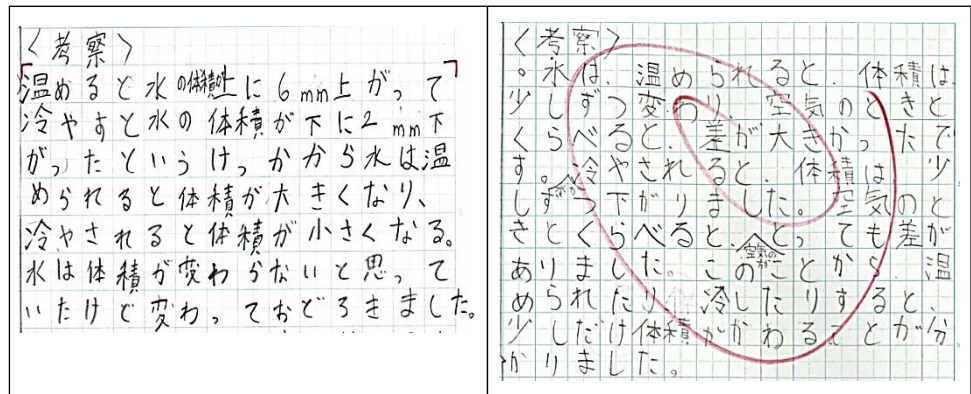 〈考察〉
温めると水の体積が上に6mm上がって
冷やすと水の体積が下に2mm下
がったというけっかから水は温
められると体積が大きくなり、
冷やされると体積が小さくなる。
水は体積が変わらないと思って
いたけど変わっておどろきました。
〈考察〉
。水は、温められると、体積は
少しずつ変わり、空気のときと
くらべると、差が大きかったで
す。冷やされると、体積は少
しずつ下がりました。空気のと
きとくらべると、とっても差が
ありました。このことから、温
空気の
められたり、冷したりすると、
少しだけ体積がかわることが分
かりました。